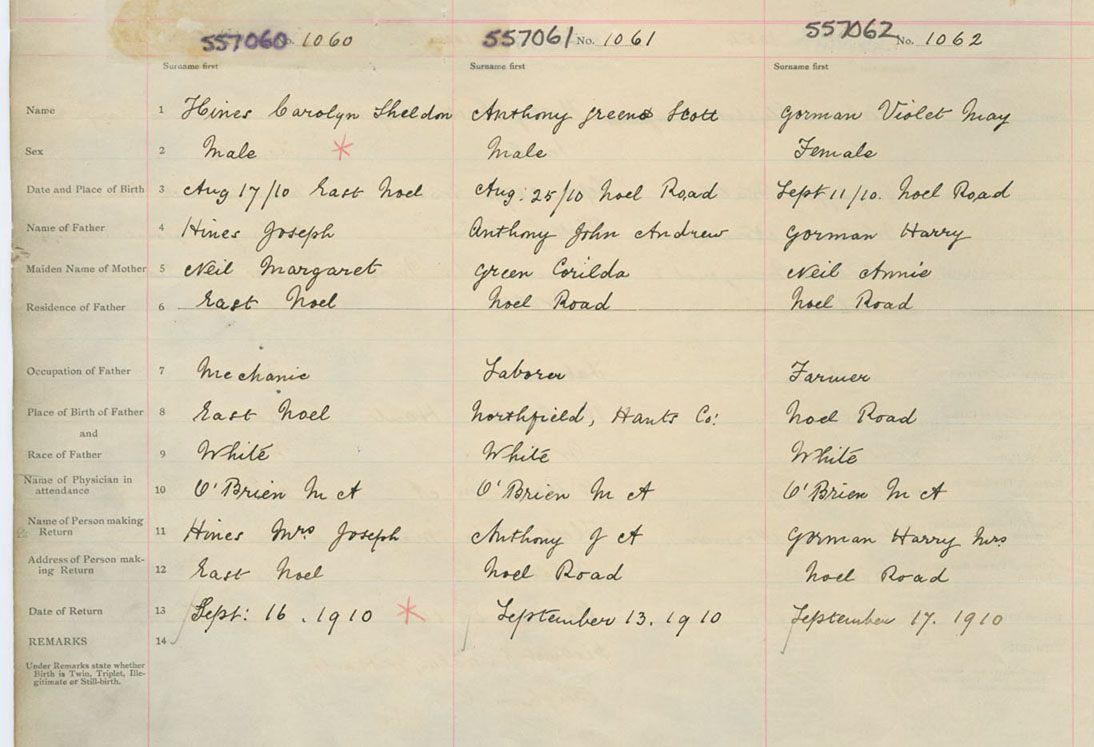 557060 No. 1060 557061 No. 1061 557062 No. 1062
Surname first Surname first Surname first
Name 1 Hines Carolyn Sheldon Anthony Greend Scott Gorman Violet May
Sex 2 Male * Male Female
Date and Place of Birth 3 Aug 17/10 East Noel Aug: 25/10 Noel Road Sept 11/10. Noel Road
Name of Father 4 Hines Joseph Anthony John Andrew Gorman Harry
Maiden Name of Mother 5 Neil Margaret Green Corilda Neil Annie
Residence of Father 6 East Noel Noel Road Noel Road
Occupation of Father 7 Mechanic Laborer Farmer
Place of Birth of Father 8 East Noel Northfield, Hants Co: Noel Road
and
Race of Father 9 White White White
Name of Physician in
attendance 10 O'Brien M A O'Brien M A O'Brien M A
Name of Person making
Return 11 Hines Mrs Joseph Anthony J A Gorman Harry Mrs
Address of Person mak-
ing Return 12 East Noel Noel Road Noel Road
Date of Return 13 Sept: 16. 1910 * September 13. 1910 September 17. 1910
REMARKS 14
Under Remarks state whether
Birth is Twin, Triplet, Ille-
gitimate or Still-birth.